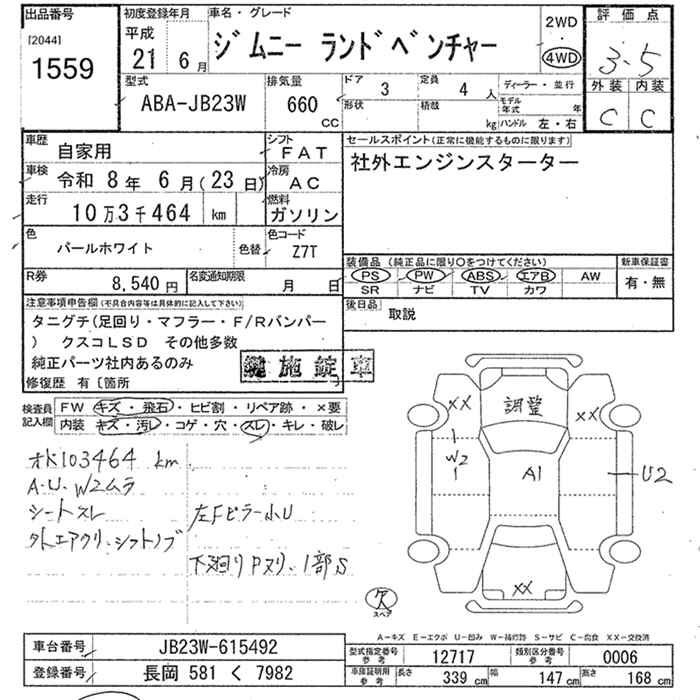 出品番号
[2044]
1559
初度登録年月
平成
21 6月
車名・グレード
ジムニー ランドベンチャー
2WD
4WD
評価点
3.5
外装 内装
C C
型式
ABA-JB23W
排気量
660
cc
ドア 3
形状
定員 4人
積載 kg
ディーラー・並行
モデル年式 年
ハンドル 左・右
車歴
自家用
シフト
FAT
車検
令和 8年 6月(23日)
冷房
AC
走行
10万3千464 km
燃料
ガソリン
色
パールホワイト
色替
色コード
Z7T
R券
8,540円
名変通知期限
月 日
セールスポイント(正常に機能するものに限ります)
社外エンジンスターター
装備品 (純正品に限り○をつけてください)
PS PW ABS エアB AW
SR ナビ TV カワ
新車保証書
有・無
後日品
取説
注意事項申告欄(不具合内容等は具体的に記入して下さい)
タニグチ(足回り・マフラー・F/Rバンパー
) クスコLSD その他多数
純正パーツ社内あるのみ
修復歴 有〔箇所
施錠車
検査員
記入欄
FW キズ・飛石・ヒビ割・リペア跡・×要
内装 キズ・汚レ・コゲ・穴・スレ・キレ・破レ
オK103464 km
A・U・W2ムラ
シートスレ
外エアクリ・シフトノブ
左Fピラー小U
下廻りPヌリ・1部S
XX
調整
XX
W2
A1
U2
XX
欠
スペア
A－キズ E－エクボ U－凹み W－補修跡 S－サビ C－腐食 XX－交換済
車台番号
JB23W-615492
登録番号
長岡 581 く 7982
型式指定番号
参考
12717
類別区分番号
参考
0006
車庫証明用
参考
長さ 339 cm
幅 147 cm
高さ 168 cm